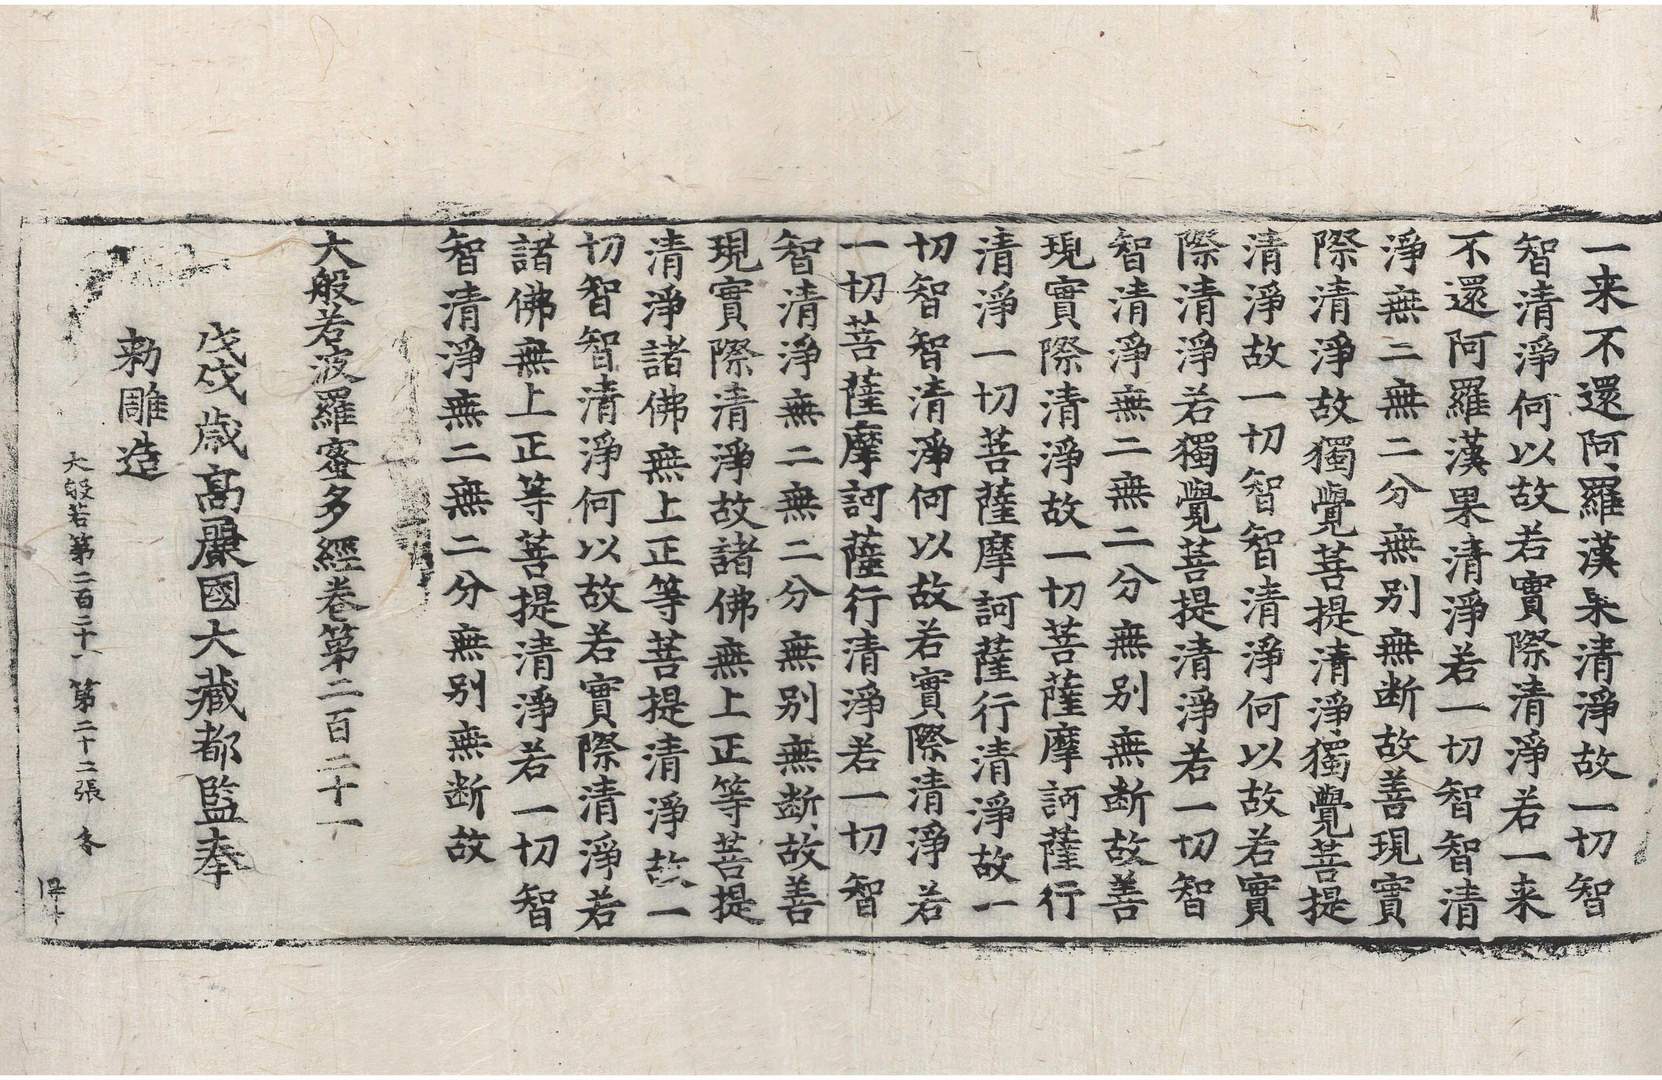 一来不還阿羅漢果清淨故一切智
智清淨何以故若實際清淨若一来
不還阿羅漢果清淨若一切智智清
淨無二無二分無別無断故善現實
際清淨故獨覺菩提清淨獨覺菩提
清淨故一切智智清淨何以故若實
際清淨若獨覺菩提清淨若一切智
智清淨無二無二分無別無断故善
現實際清淨故一切菩薩摩訶薩行
清淨一切菩薩摩訶薩行清淨故一
切智智清淨何以故若實際清淨若
一切菩薩摩訶薩行清淨若一切智
智清淨無二無二分無別無断故善
現實際清淨故諸佛無上正等菩提
清淨諸佛無上正等菩提清淨故一
切智智清淨何以故若實際清淨若
諸佛無上正等菩提清淨若一切智
智清淨無二無二分無別無断故
大般若波羅蜜多經卷第二百二十一
戊戌歲高麗國大藏都監奉
勅雕造
大般若第二百二十一 第二十二張 冬